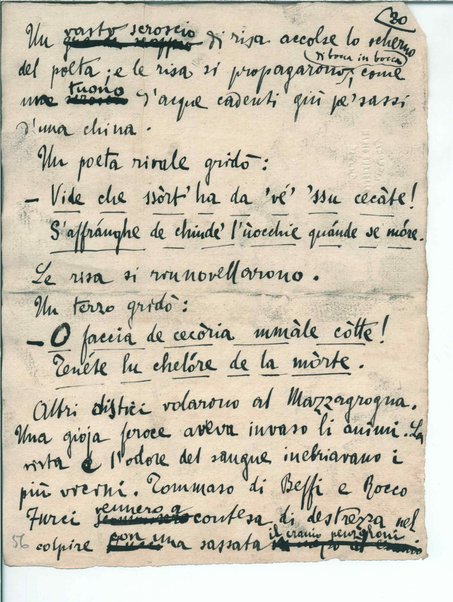 20
Un vasto scroscio di risa accolse lo scherno
del poeta; e le risa si propagarono, di bocca in bocca, come
un tuono d'acque cadenti giù pe' sassi
d'una china.
Un poeta rivale gridò:
— Vide che ssòrt' ha da 'vé' 'ssu cecàte!
S'affránghe de chiude' l'uocchie quánde se mòre.
Le risa si rinnovellarono.
Un terzo gridò:
— O faccia de cecòria mmàle còtte!
Tenéte lu chelóre de la mòrte.
Altri distici volarono al Mazzagrogna.
Una gioja feroce aveva invaso li animi. La
vista e l'odore del sangue inebriavano i
più vicini. Tommaso di Beffi e Rocco
Furci vennero a contesa di destrezza nel
colpire con una sassata il cranio penzoloni
56